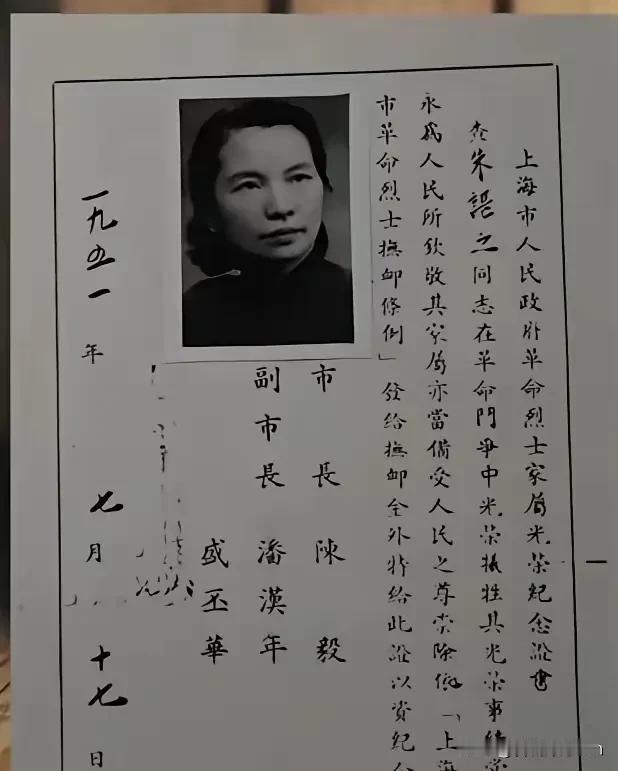 上海市人民政府革命烈士家屬光榮紀念證書
查朱諶之同志在革命鬥爭中光榮犧牲其光榮事績當
永為人民所欽敬其家屬亦當備受人民之尊崇除依「上海
市革命烈士撫卹條例」發給撫卹金外特給此證以資紀念
市長 陳毅
副市長 潘漢年
盛丕華
一九五一年七月十七日